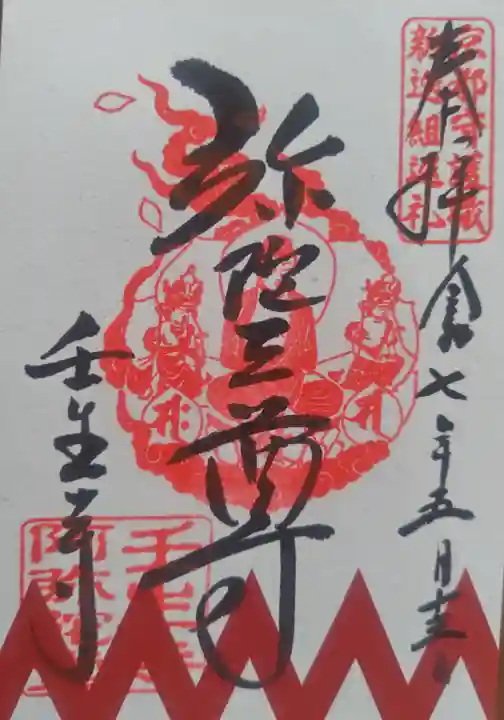 奉拝
令和七年五月十三日
京都守護職
新選組巡礼
弥陀三尊
壬生寺
壬生寺
阿弥陀堂